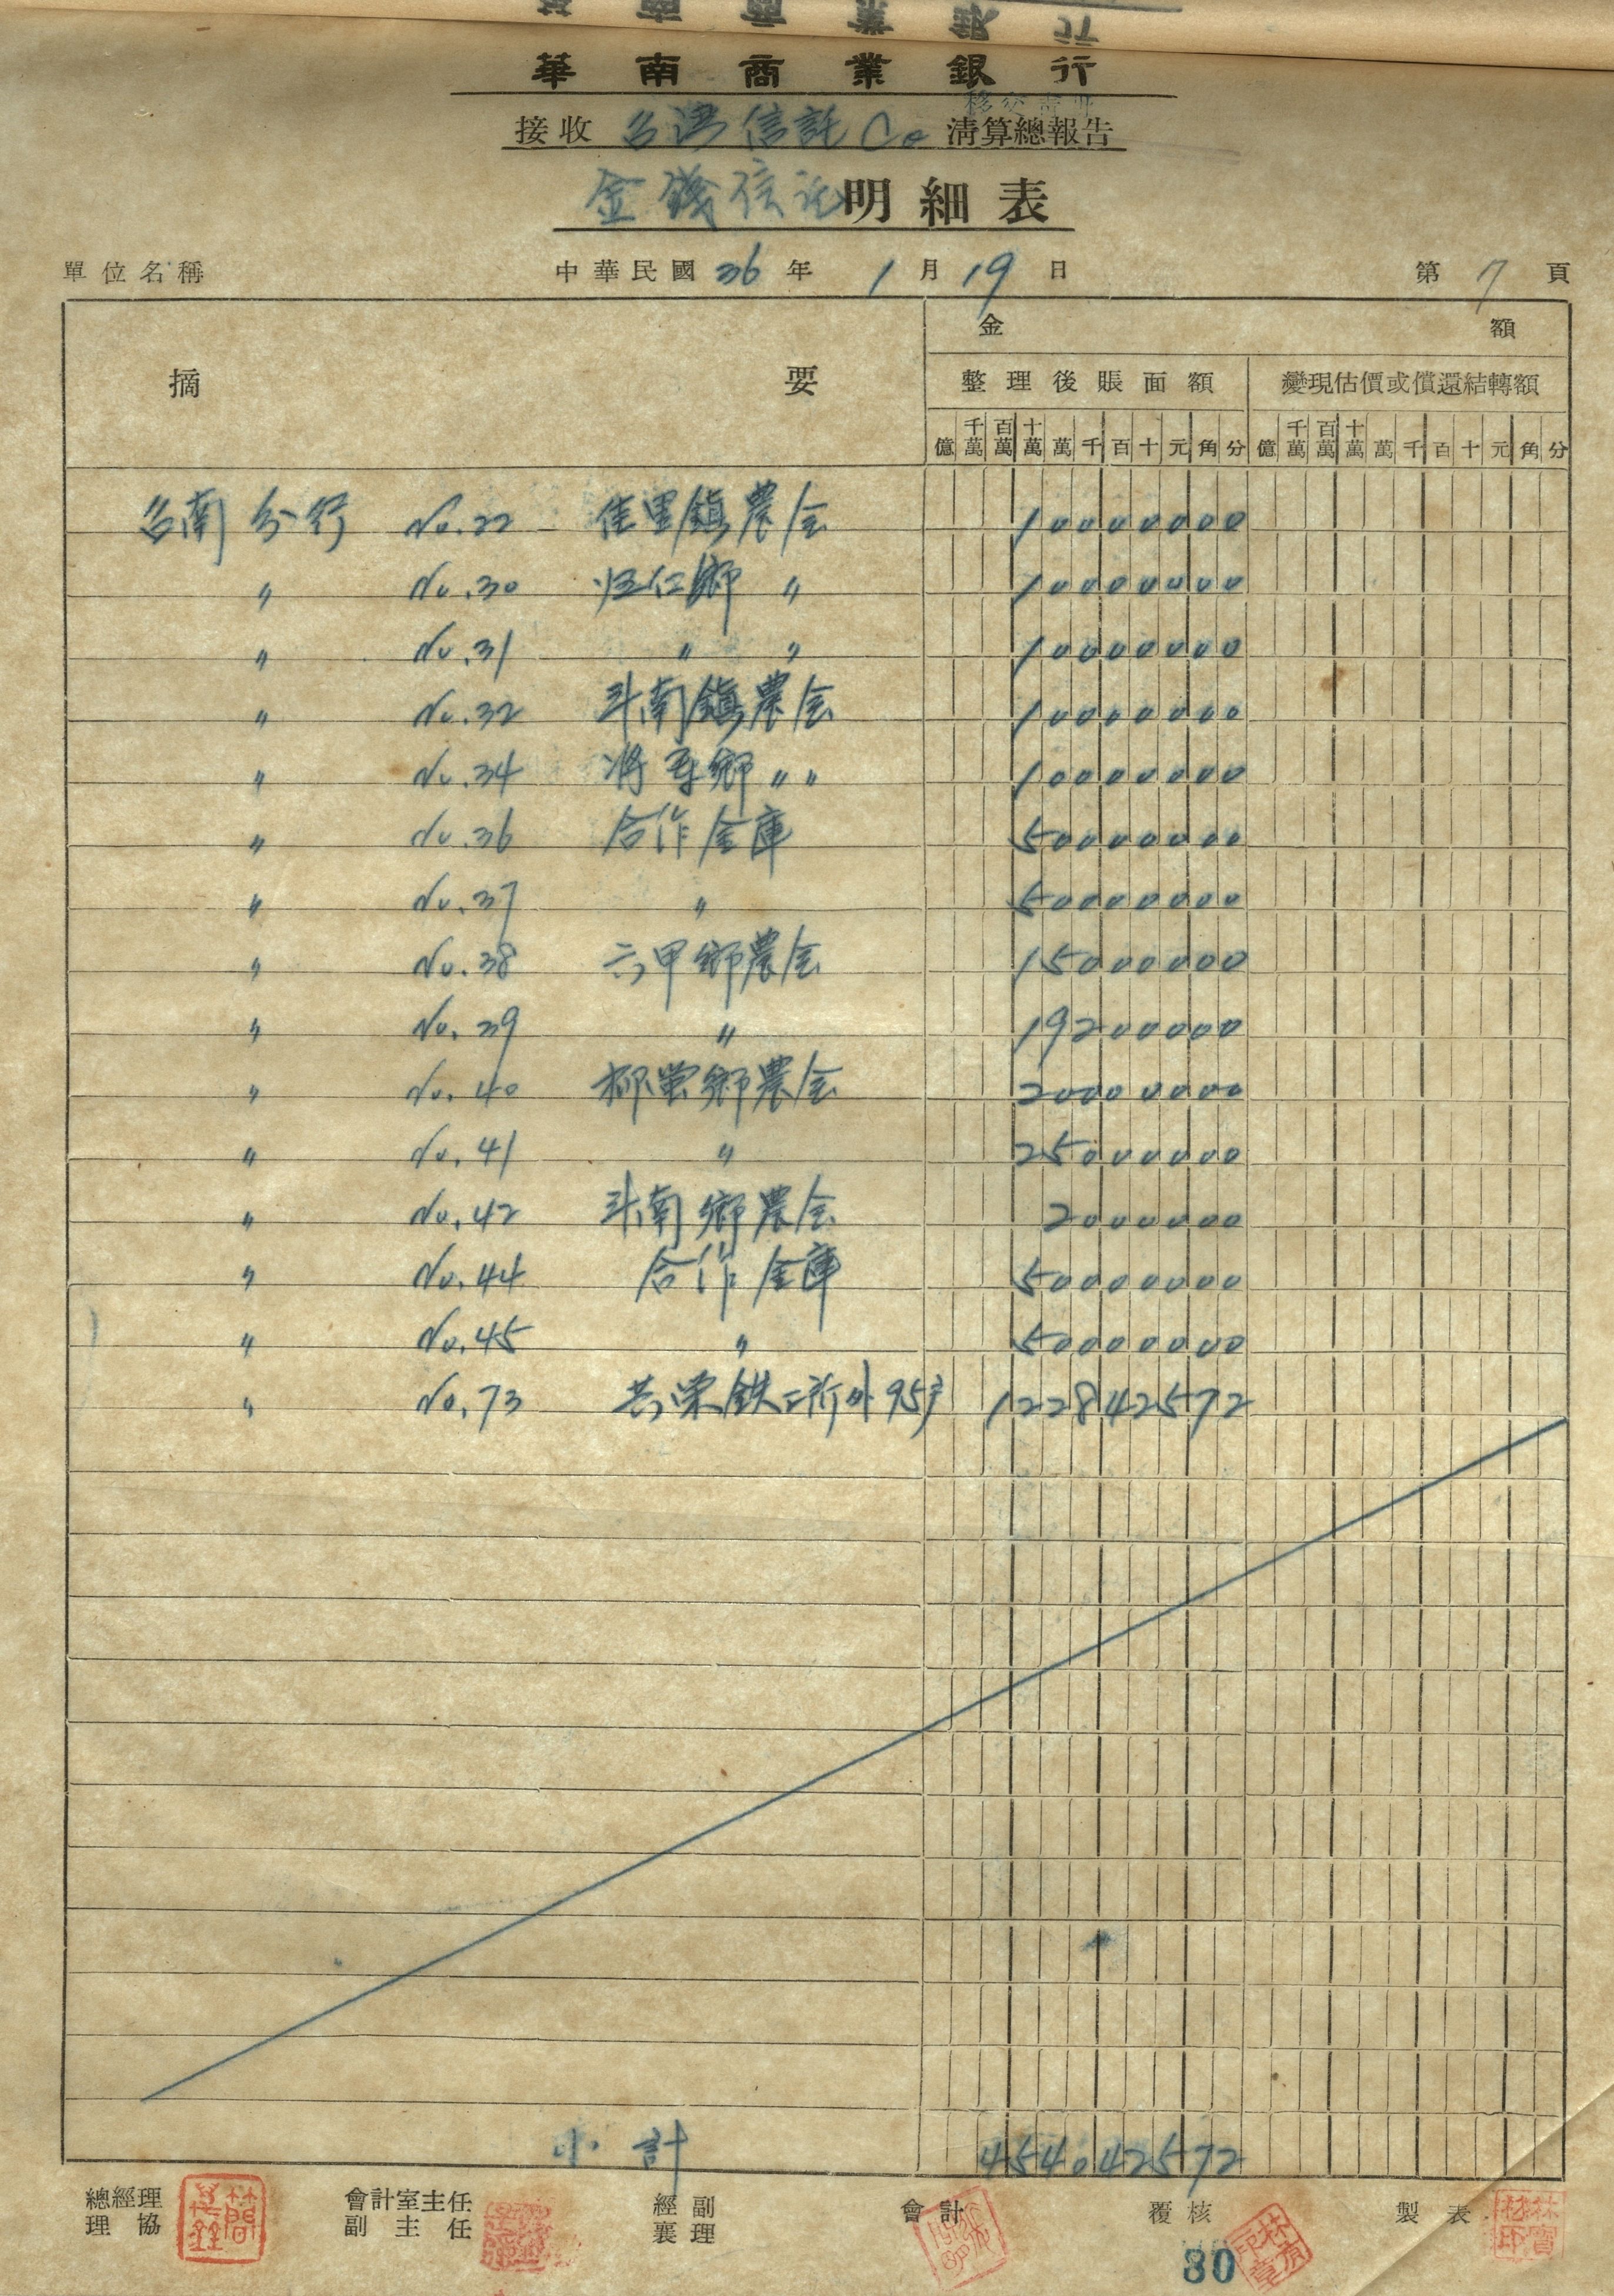 華南商業銀行
接收 台湾信託Co 清算總報告
金錢信託明細表
單位名稱 中華民國36年1月19日 第7頁
摘要 金額
整理後賬面額 變現估價或償還結轉額
億 千萬 百萬 十萬 萬 千 百 十 元 角 分 億 千萬 百萬 十萬 萬 千 百 十 元 角 分
台南分行 No.22 佳里鎮農会 10000000
〃 No.30 归仁鄉 〃 10000000
〃 No.31 〃 〃 10000000
〃 No.32 斗南鎮農会 10000000
〃 No.34 将軍鄉 〃〃 10000000
〃 No.36 合作金庫 50000000
〃 No.37 〃 50000000
〃 No.38 六甲鄉農会 15000000
〃 No.39 〃 19200000
〃 No.40 柳営鄉農会 20000000
〃 No.41 〃 25000000
〃 No.42 斗南鄉農会 2000000
〃 No.44 合作金庫 50000000
〃 No.45 〃 50000000
〃 No.73 共栄鉄工所外95户 122842572
小計 454042572
總經理 會計室主任 經副 會計 覆核 製表
協理 副主任 襄理
30